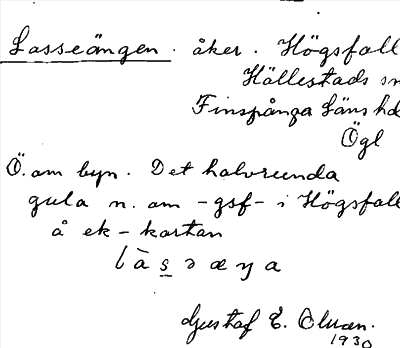 Lasseängen. åker. Högsfall
Hällestads sn
Finspånga Läns hd
Ögl
Ö. om byn. Det halvrunda
gula n. om -gsf- i Högsfall
å ek-kartan
làsɔæŋa
Gustaf E. Olsson.
1930